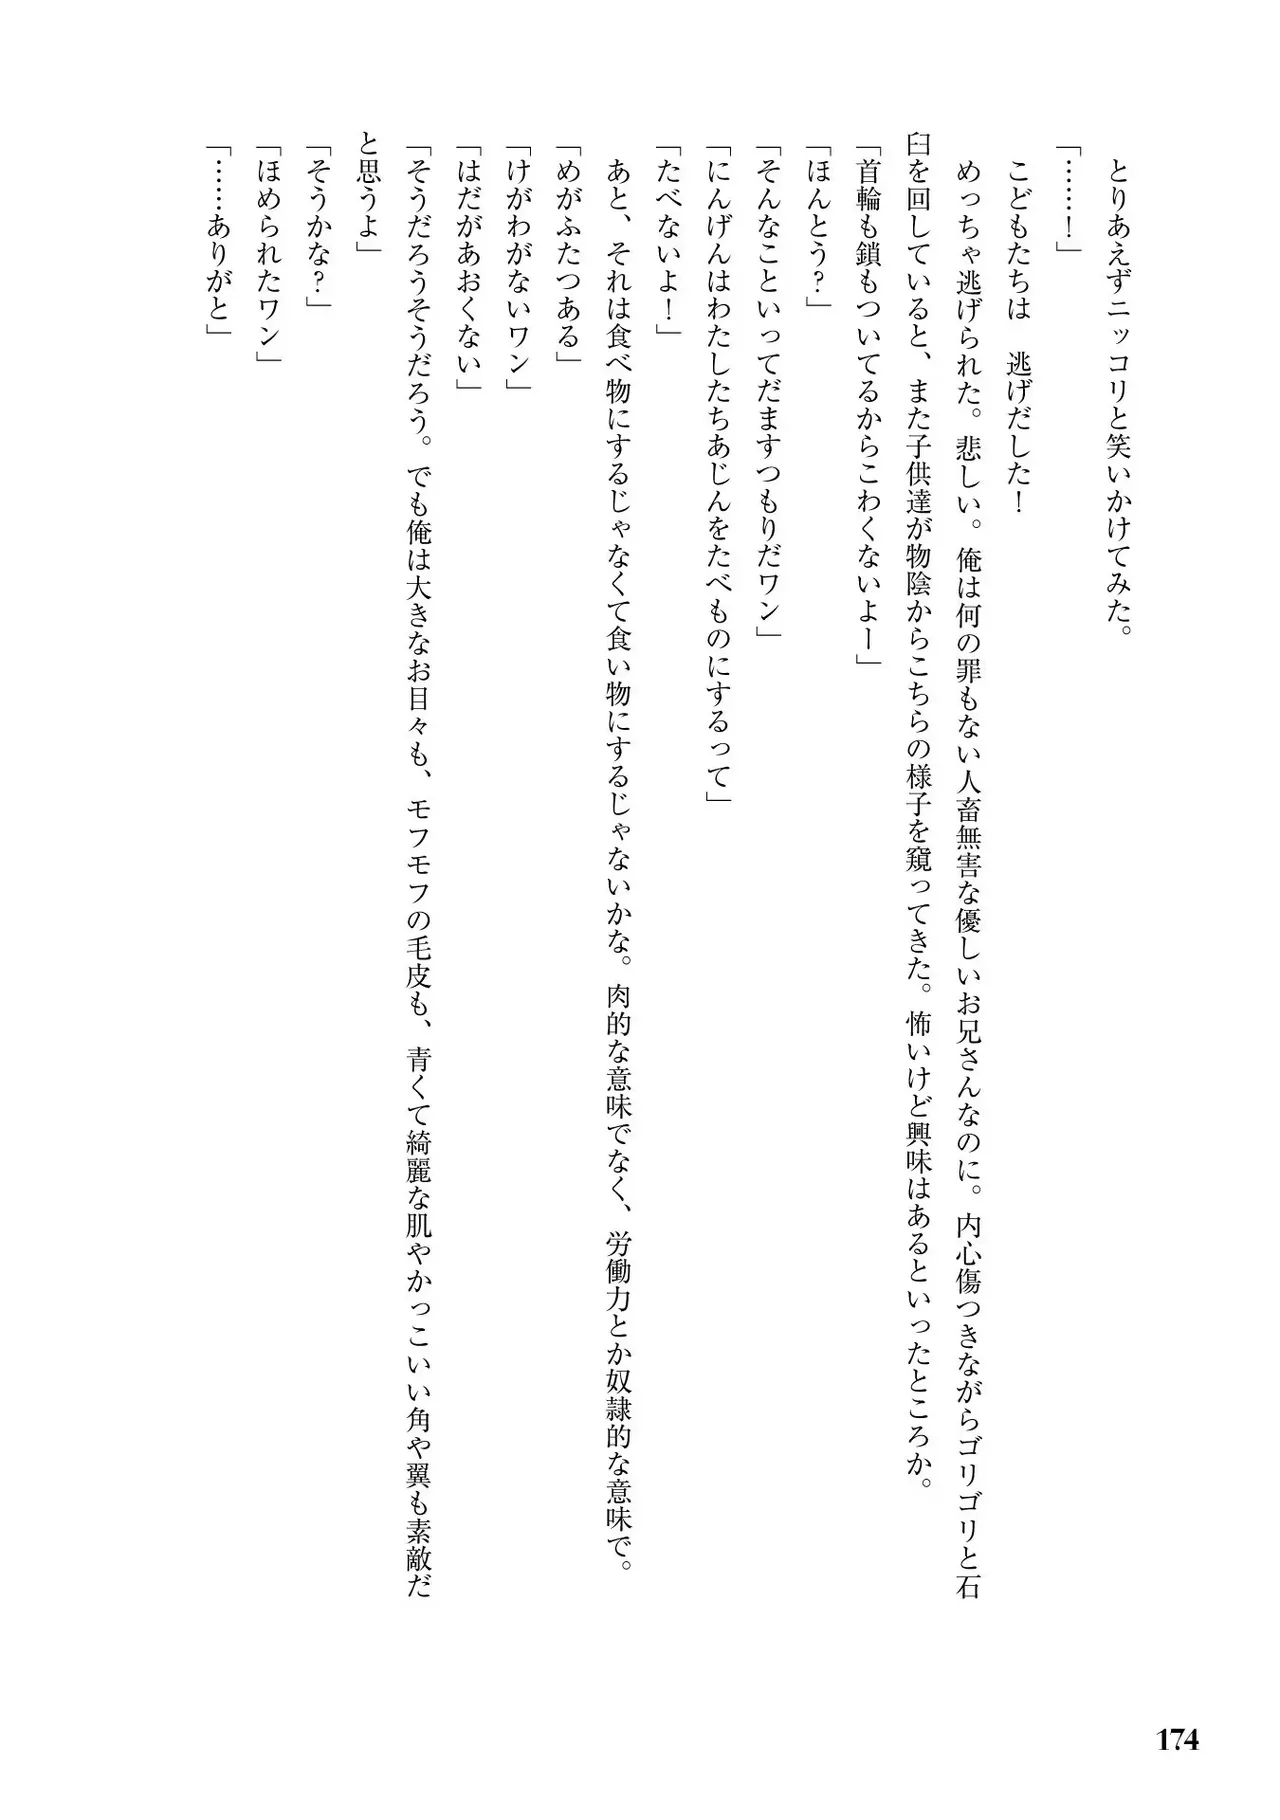 とりあえずニッコリと笑いかけてみた。
「……！」
　こどもたちは　逃げだした！
　めっちゃ逃げられた。悲しい。俺は何の罪もない人畜無害な優しいお兄さんなのに。内心傷つきながらゴリゴリと石
臼を回していると、また子供達が物陰からこちらの様子を窺ってきた。怖いけど興味はあるといったところか。
「首輪も鎖もついてるからこわくないよー」
「ほんとう？」
「そんなこといってだますつもりだワン」
「にんげんはわたしたちあじんをたべものにするって」
「たべないよ！」
　あと、それは食べ物にするじゃなくて食い物にするじゃないかな。肉的な意味でなく、労働力とか奴隷的な意味で。
「めがふたつある」
「けがわがないワン」
「はだがあおくない」
「そうだろうそうだろう。でも俺は大きなお目々も、モフモフの毛皮も、青くて綺麗な肌やかっこいい角や翼も素敵だ
と思うよ」
「そうかな？」
「ほめられたワン」
「……ありがと」
174